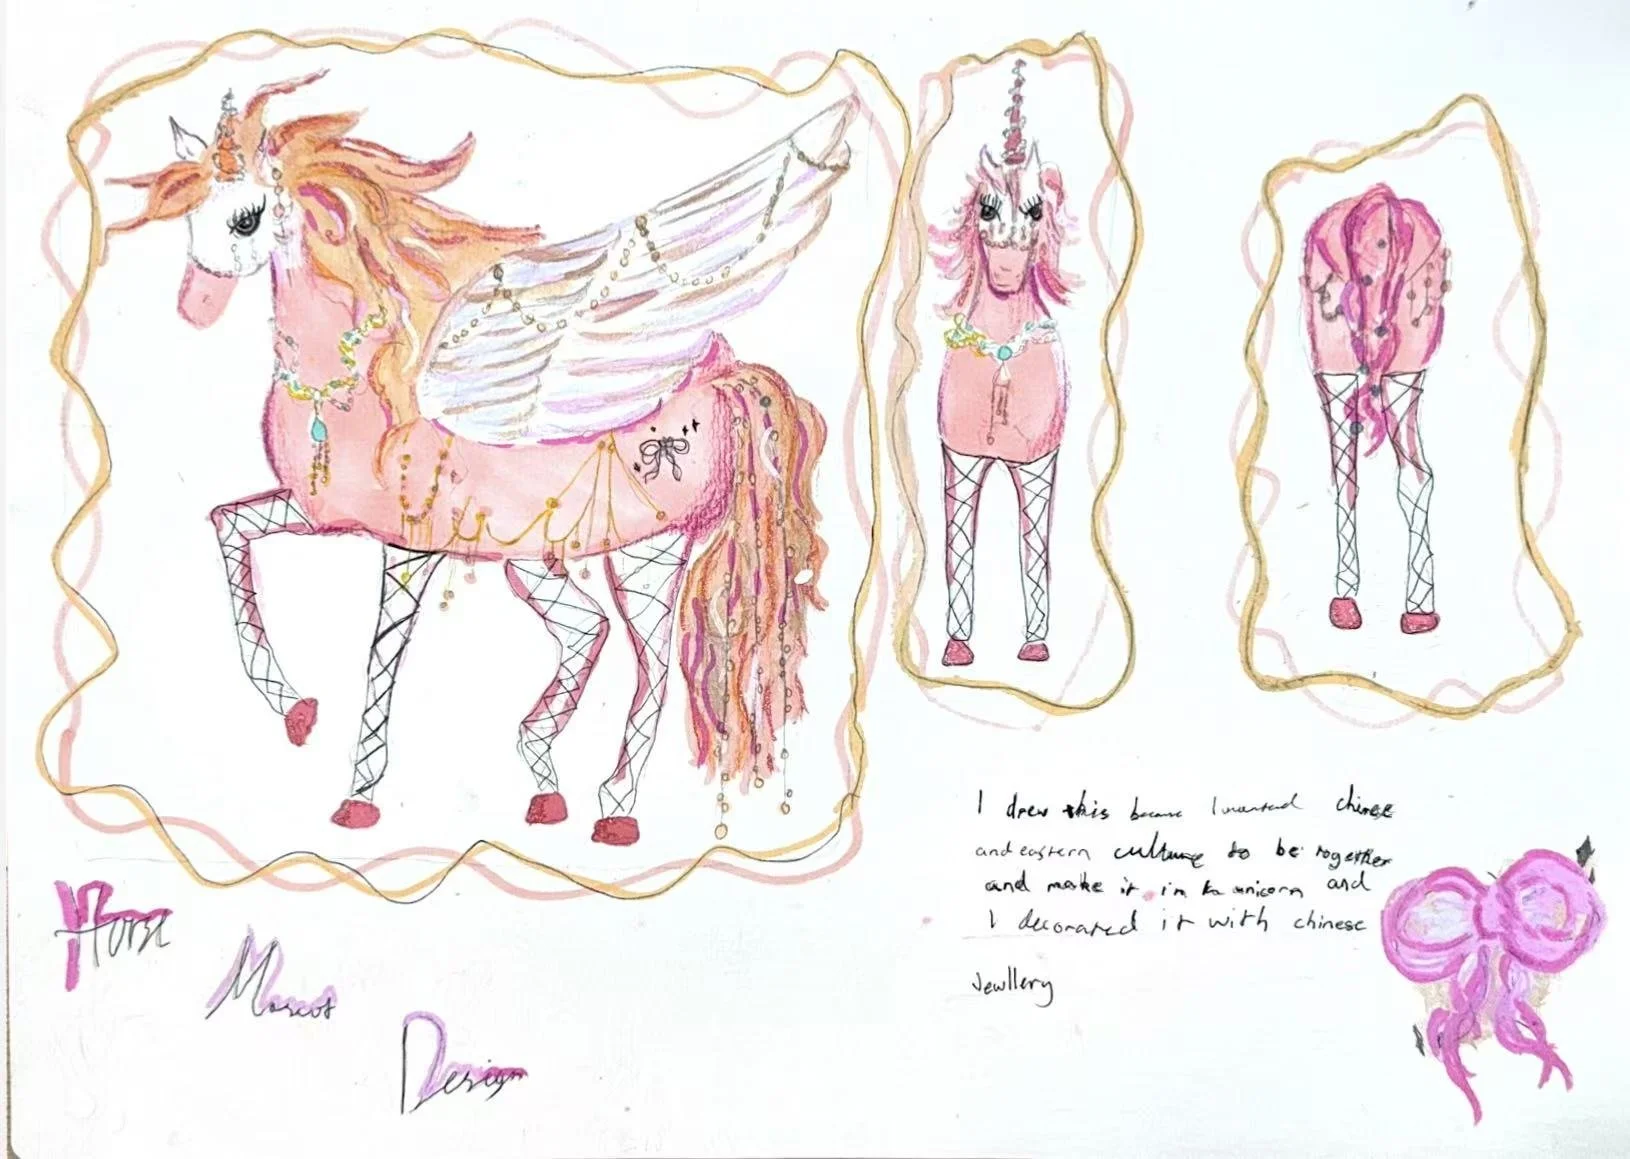 Horse
Mascot
Design
I drew this because I wanted chinese
and eastern culture to be together
and make it in to unicorn and
I decorated it with chinese
Jewllery